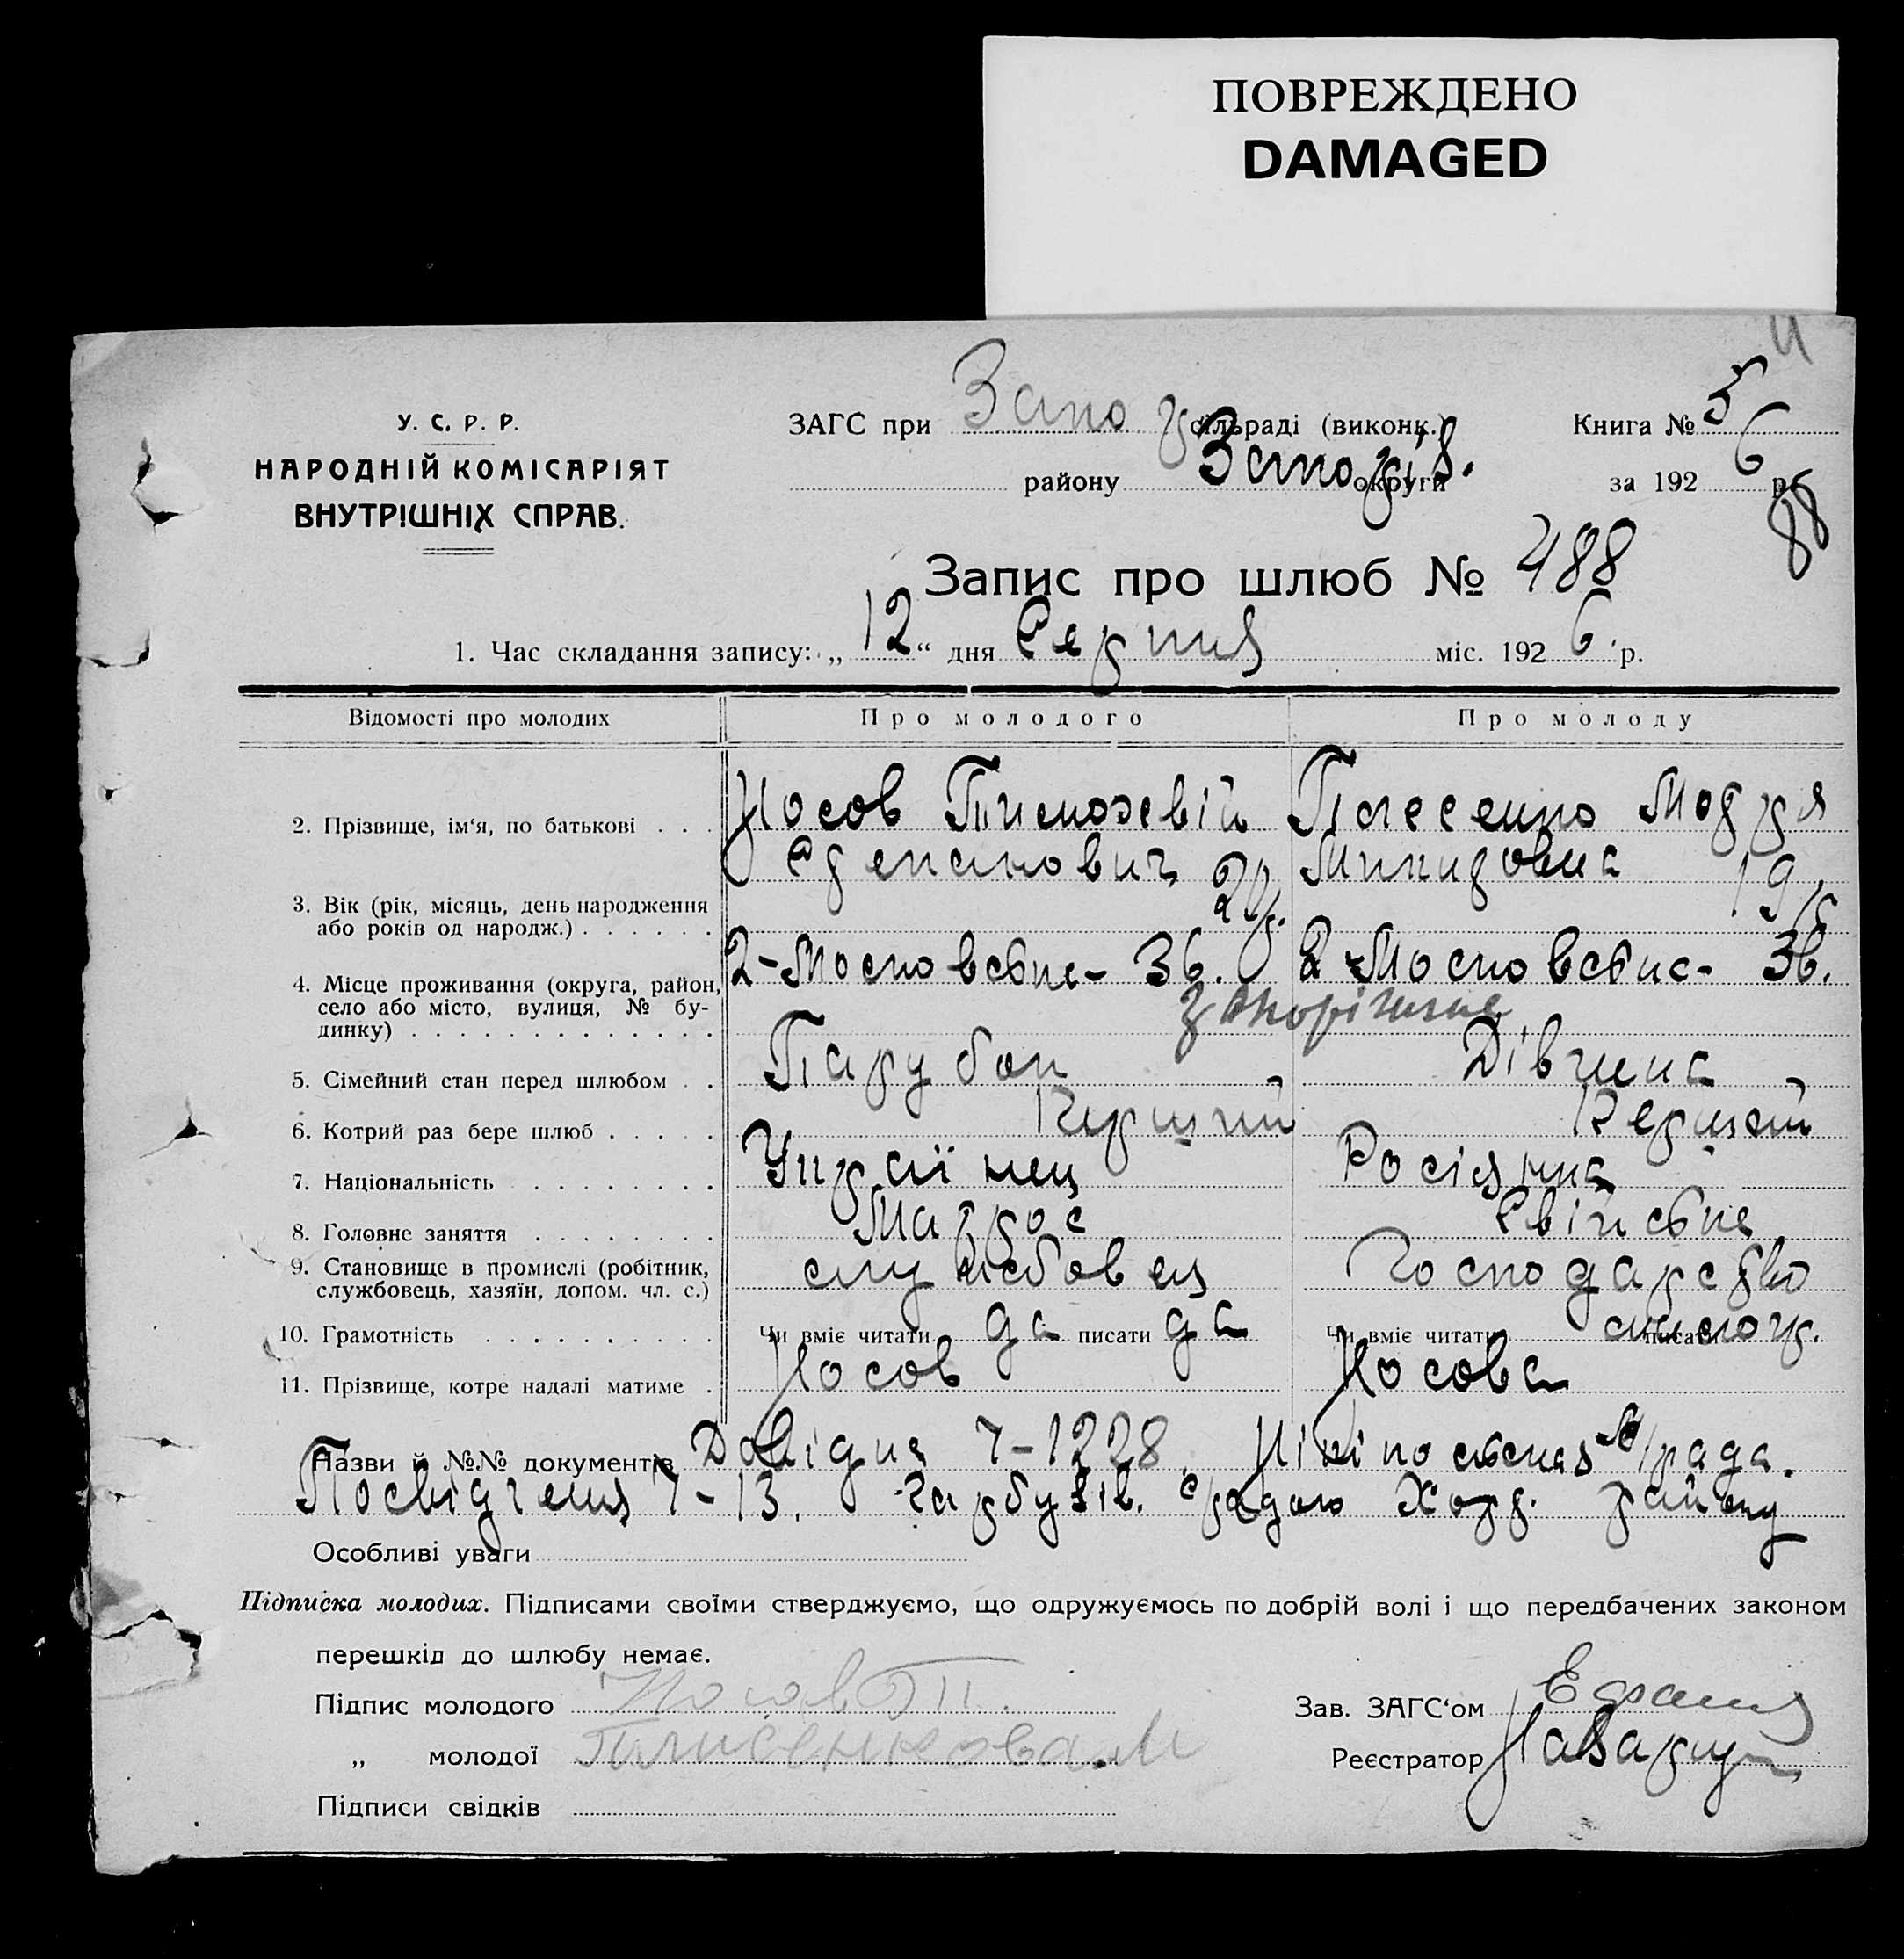 ПОВРЕЖДЕНО
DAMAGED
У. С. Р. Р.
НАРОДНІЙ КОМІСАРІЯТ
ВНУТРІШНІХ СПРАВ.
ЗАГС при Запор сільраді (виконк.)
району Запоріз. округи
Книга № 5
за 192 6 р.
88
Запис про шлюб № 488
1. Час складання запису: „ 12 “ дня Серпня міс. 192 6 р.
Відомості про молодих Про молодого Про молоду
2. Прізвище, ім‘я, по батькові . . . Носов Тимохвій
Степанович
Модря
3. Вік (рік, місяць, день народження
або років од народж.) . . . . . . 19
4. Місце проживання (округа, район,
село або місто, вулиця, № бу-
динку) . . . . . . . . . . . . . 2-Московська- 36. 2 Московська- 36.
Запоріжжя
5. Сімейний стан перед шлюбом . . Парубок Дівчина
6. Котрий раз бере шлюб . . . . . Перший Перший
7. Національність . . . . . . . . Українец Росіянка
8. Головне заняття . . . . . . . . Матрос Свійське
9. Становище в промислі (робітник,
службовець, хазяїн, допом. чл. с.) службовец Господарство
10. Грамотність . . . . . . . . . . Чи вміє читати да писати да Чи вміє читати писати
11. Прізвище, котре надалі матиме . Носов Носова
Назви й №№ документів Довідка 7-1228. рада.
Посвідчення 7-13. с/радою району
Особливі уваги
Підписка молодих. Підписами своїми стверджуємо, що одружуємось по добрій волі і що передбачених законом
перешкід до шлюбу немає.
Підпис молодого Носов Зав. ЗАГС‘ом
„ молодої Плисенкова М Реєстратор
Підписи свідків